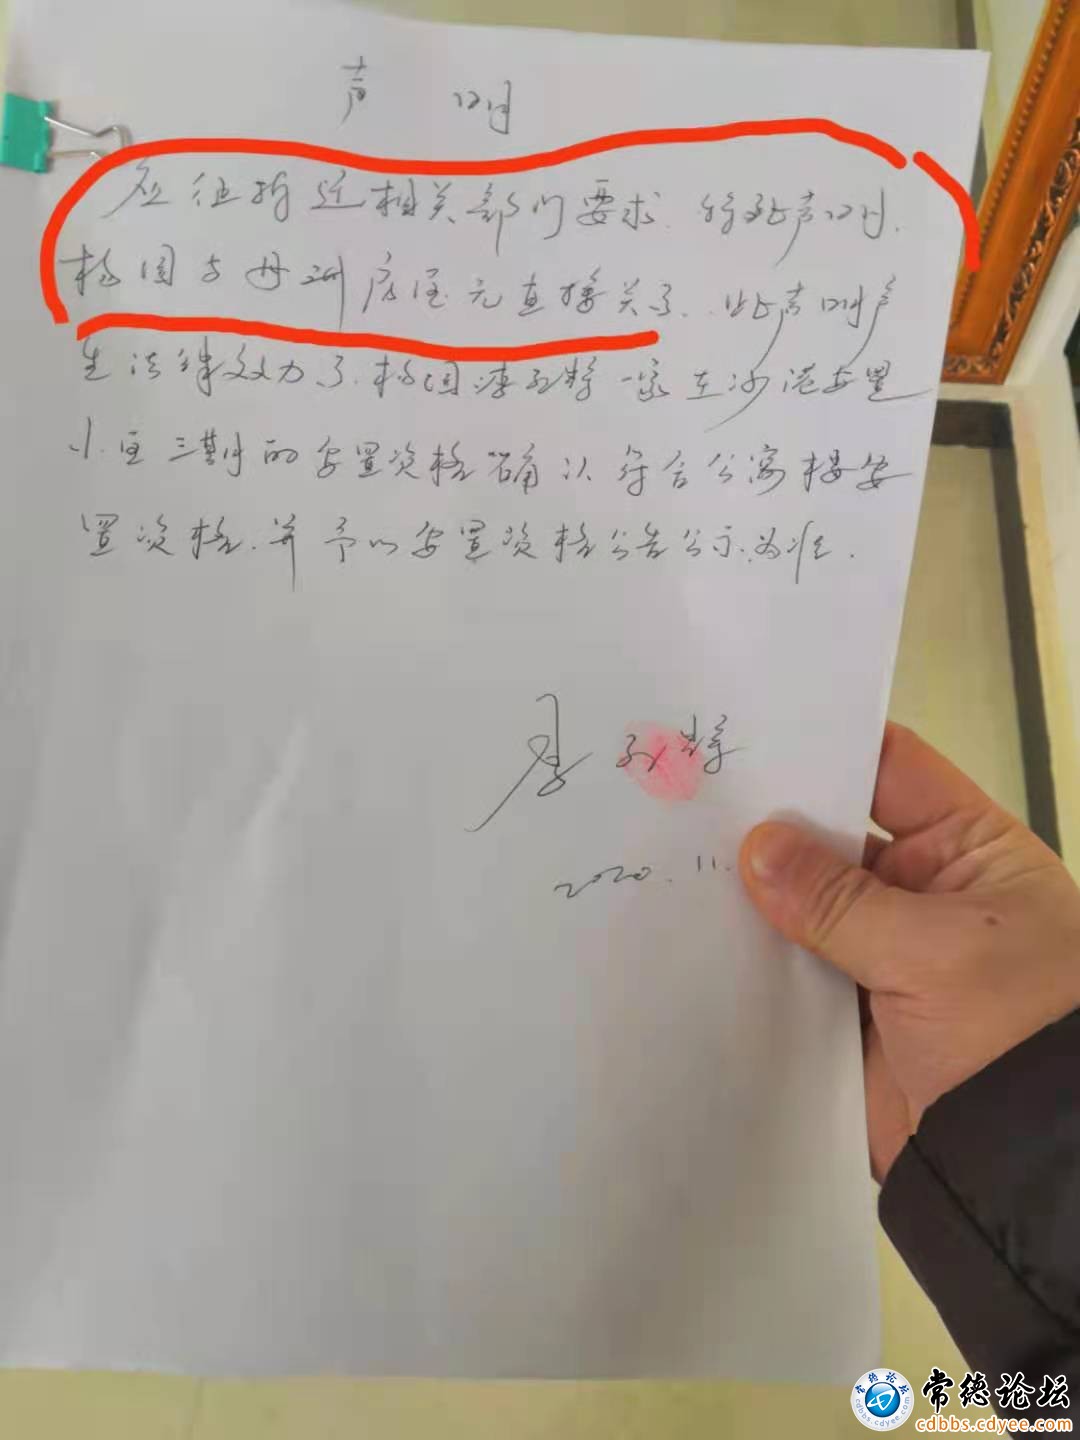 声 明
应征拆迁相关部门要求.特致声明.
杨国与丹洲房屋无直接关系..此声明产
生法律效力了.杨国唐 一家在沙港安置
小区三期的安置资格确认符合公寓楼安
置资格.并予以安置资格公告公示为准.
唐
2020.11.
常德论坛
cdbbs.cdyee.com